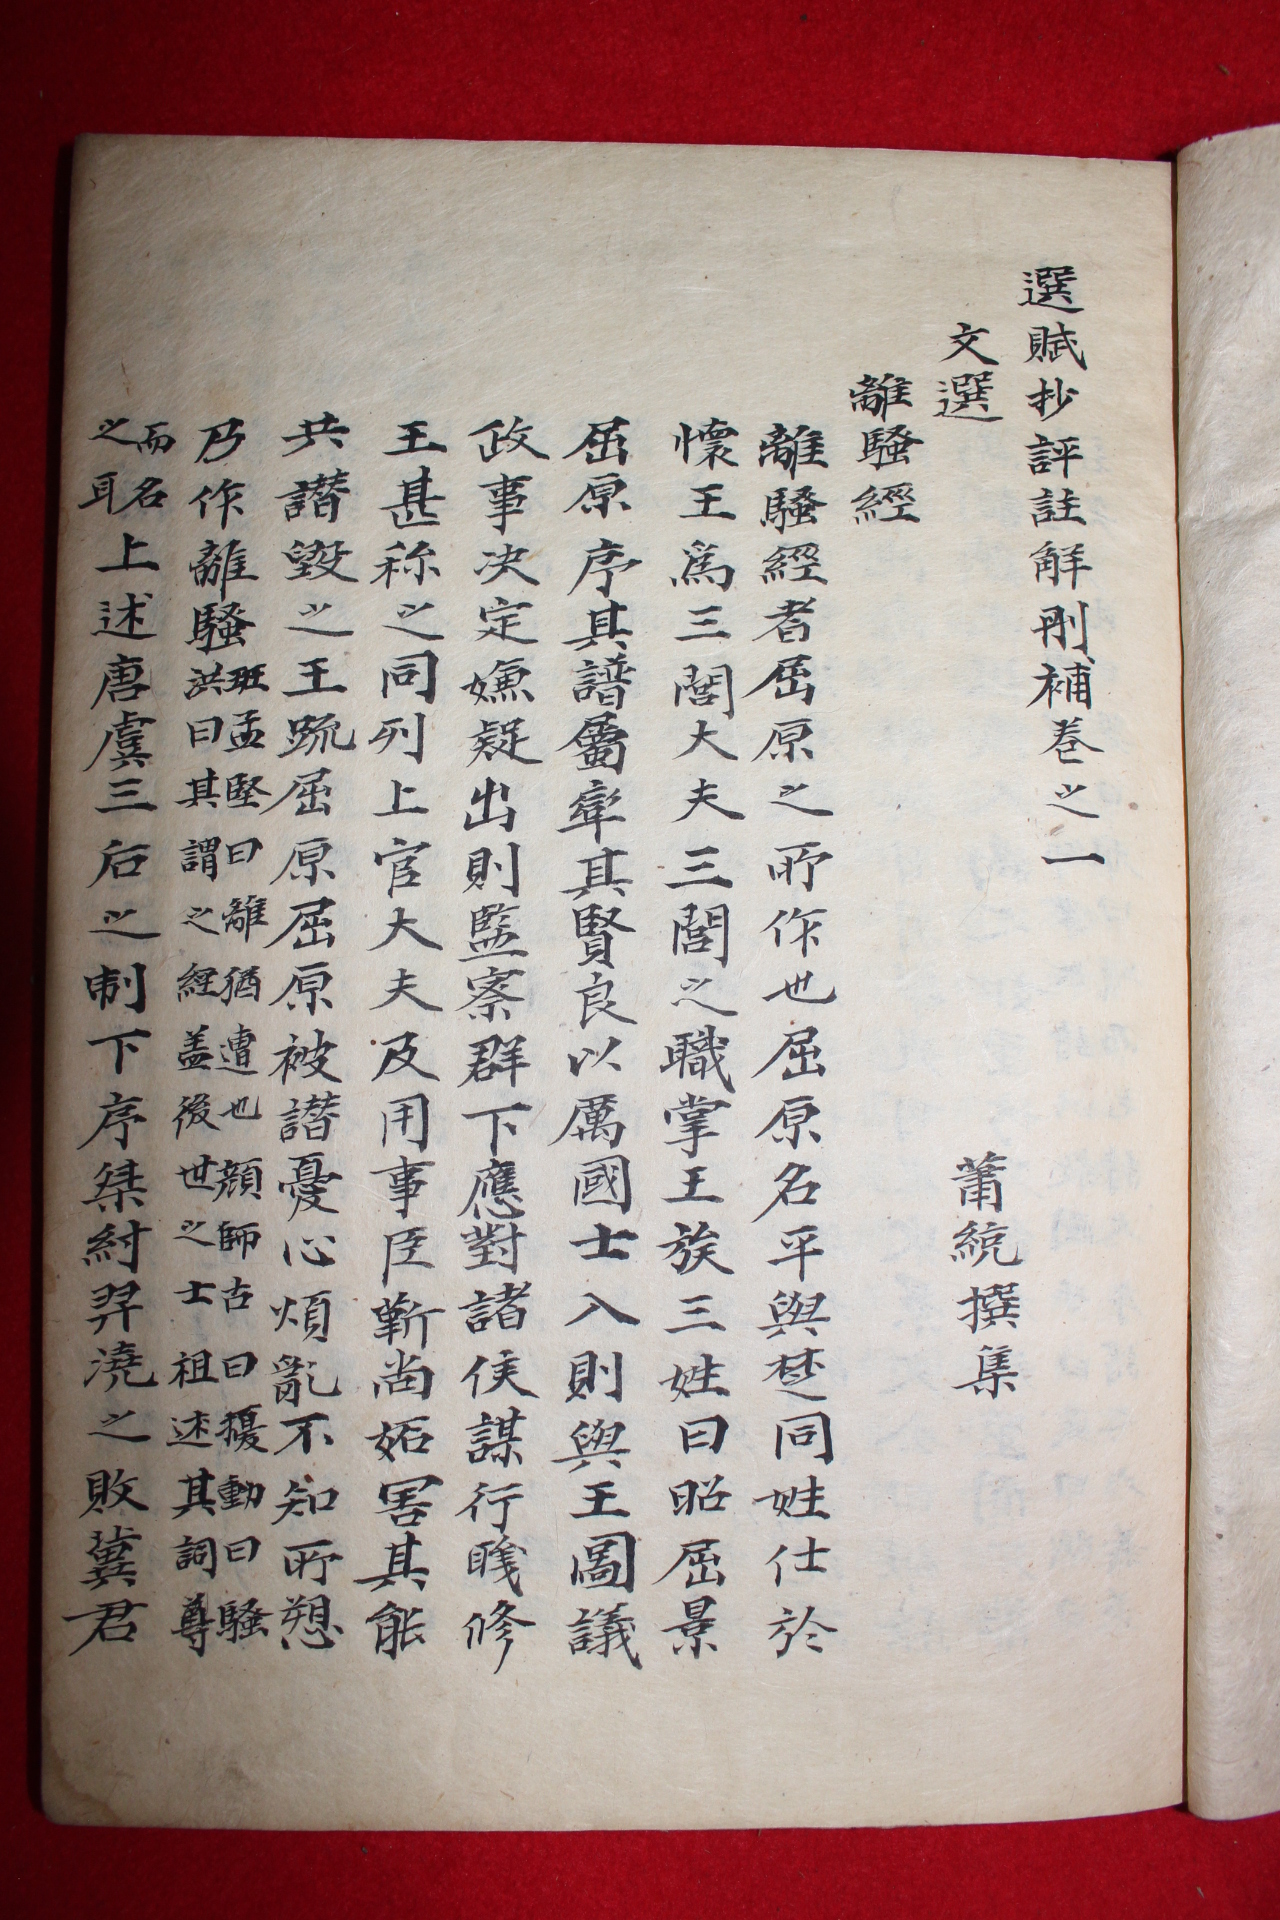 選賦抄評註解刪補卷之一
文選　蕭統撰集
離騷經
離騷經者屈原之所作也屈原名平與楚同姓仕於
懷王爲三閭大夫三閭之職掌王族三姓曰昭屈景
屈原序其譜屬率其賢良以厲國士入則與王圖議
政事决定嫌疑出則監察群下應對諸侯謀行職修
王甚称之同列上官大夫及用事臣靳尚妬害其能
共譖毁之王疏屈原屈原被譖憂心煩亂不知所愬
乃作離騷班孟堅曰離猶遭也顔師古曰擾動曰騷
洪曰其謂之經盖後世之士祖述其詞尊
而名
之耳上述唐虞三后之制下序桀紂羿澆之敗冀君